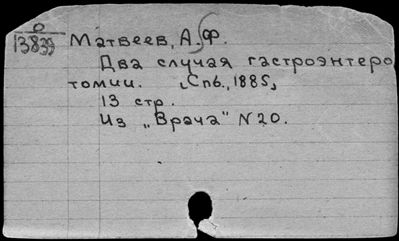 О
13839
Матвеев, А. Ф.
Два случая гастроэнтеро
томии. [Спб., 1885,]
13 стр.
Из „Врача" N 20.